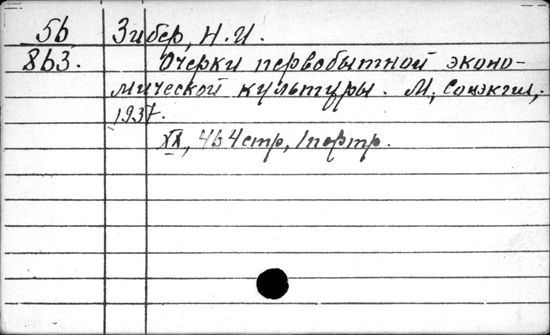 5б Зибер, Н.И.
863. Очерки первобытной эконо-
мической культуры. М, Соцэкгиз,
1937.
XX, 464 стр, 1 портр.